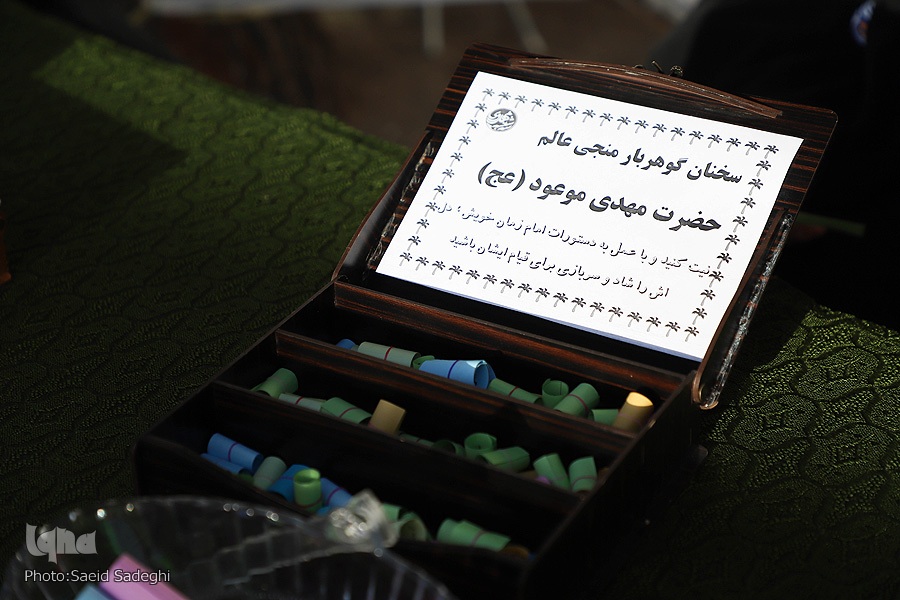 سخنان گوهربار منجی عالم
حضرت مهدی موعود (عج)
نیت کنید و با عمل به دستورات امام زمان خویش؛ دل
اش را شاد و سربازی برای قیام ایشان باشید
Iqna
Photo:Saeid Sadeghi